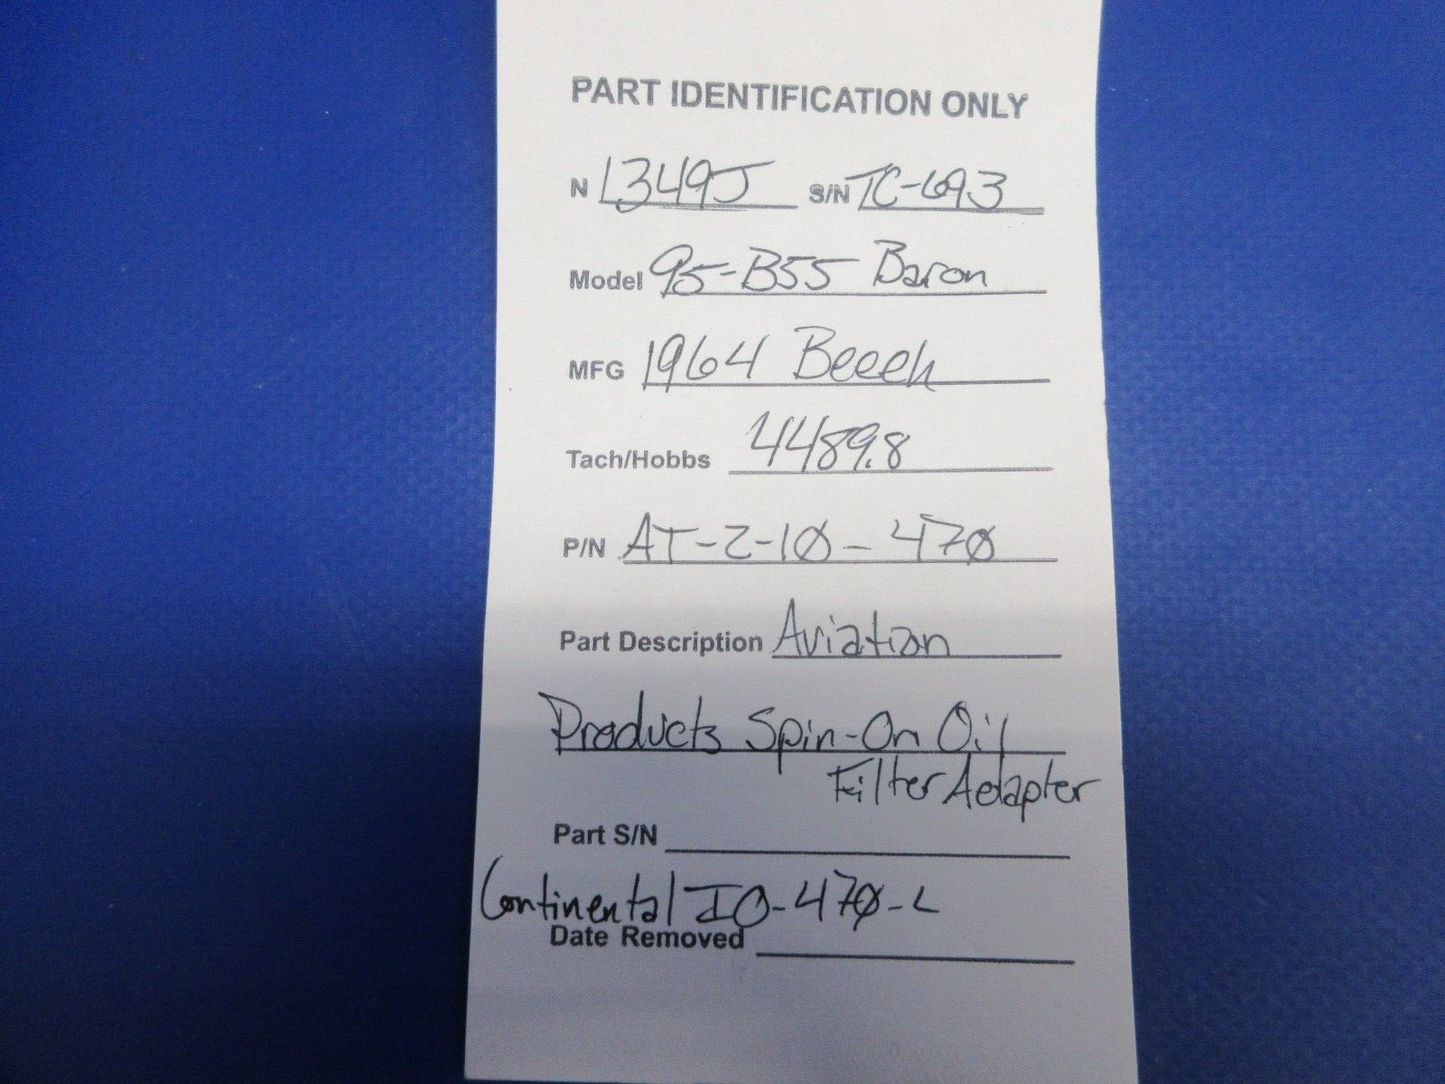 PART IDENTIFICATION ONLY
N 1349J S/N TC-693
Model 95-B55 Baron
MFG 1964 Beech
Tach/Hobbs 4489.8
P/N AT-2-10-470
Part Description Aviation
Products Spin-On Oil
Filter Adapter
Part S/N
Continental IO-470-L
Date Removed